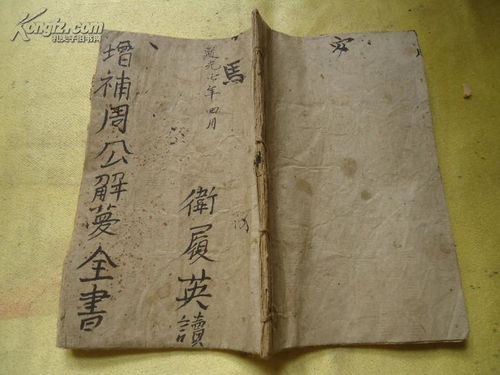 Kongfz.com
孔夫子旧书网
增補周公解夢全書
馬
道光七年四月
衛履英讀